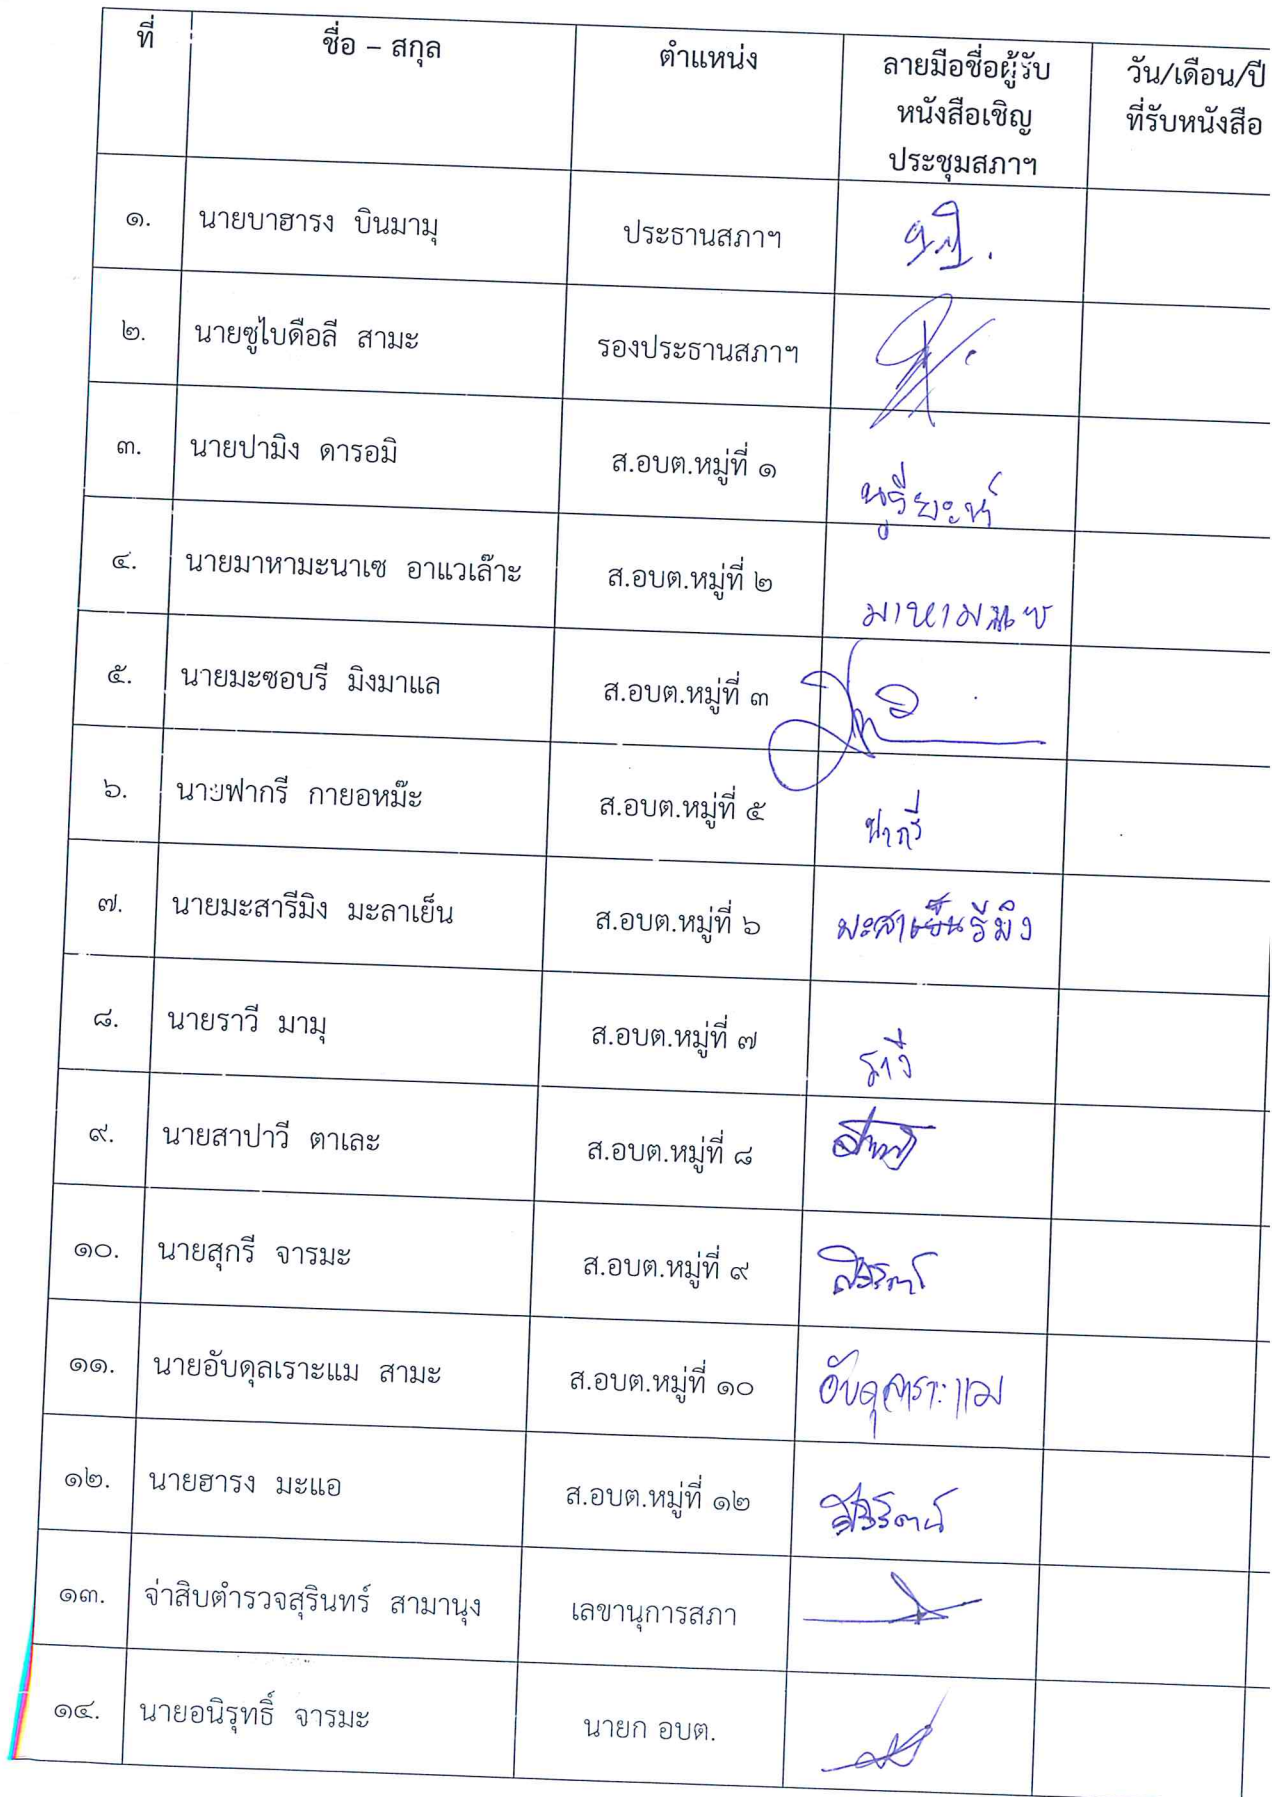 ที่ ชื่อ – สกุล ตำแหน่ง ลายมือชื่อผู้รับ วัน/เดือน/ปี
หนังสือเชิญ ที่รับหนังสือ
ประชุมสภาฯ
๑. นายบาฮารง บินมามุ ประธานสภาฯ
๒. นายซูไบดือลี สามะ รองประธานสภาฯ
๓. นายปามิง ดารอมิ ส.อบต.หมู่ที่ ๑ นูรียะห์
๔. นายมาหามะนาเซ อาแวเล๊าะ ส.อบต.หมู่ที่ ๒
๕. นายมะซอบรี มิงมาแล ส.อบต.หมู่ที่ ๓
๖. นายฟากรี กายอหม๊ะ ส.อบต.หมู่ที่ ๕ ฟากรี
๗. นายมะสารีมิง มะลาเย็น ส.อบต.หมู่ที่ ๖
๘. นายราวี มามุ ส.อบต.หมู่ที่ ๗ ราวี
๙. นายสาปาวี ตาเละ ส.อบต.หมู่ที่ ๘
๑๐. นายสุกรี จารมะ ส.อบต.หมู่ที่ ๙
๑๑. นายอับดุลเราะแม สามะ ส.อบต.หมู่ที่ ๑๐ อับดุลเราะแม
๑๒. นายฮารง มะแอ ส.อบต.หมู่ที่ ๑๒
๑๓. จ่าสิบตำรวจสุรินทร์ สามานุง เลขานุการสภา
๑๔. นายอนิรุทธิ์ จารมะ นายก อบต.